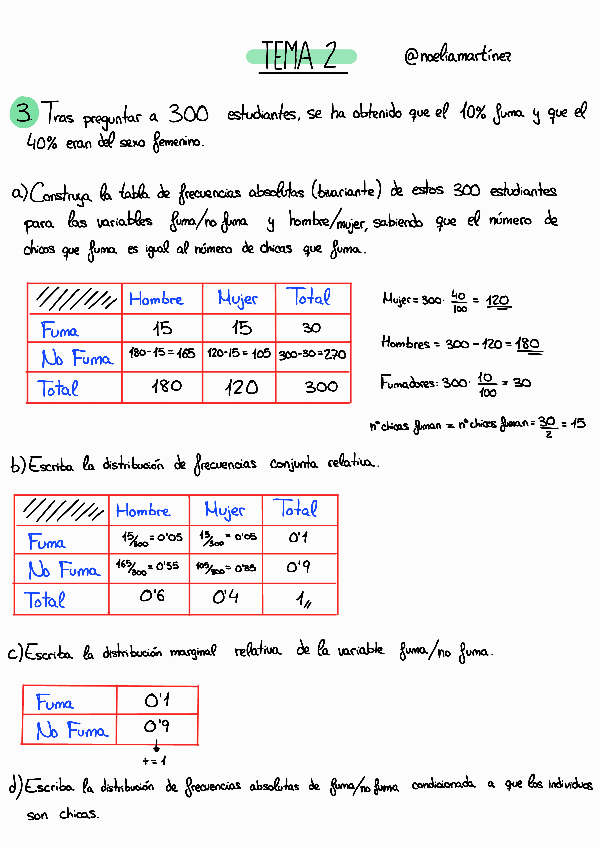 TEMA 2
@noeliamartínez
3. Tras preguntar a 300 estudiantes, se ha obtenido que el 10% fuma y que el
40% eran del sexo femenino.
a) Construya la tabla de frecuencias absolutas (bivariante) de estos 300 estudiantes
para las variables fuma/no fuma y hombre/mujer, sabiendo que el número de
chicos que fuma es igual al número de chicas que fuma.
Hombre Mujer Total
Fuma 15 15 30
No Fuma 180-15=165 120-15=105 300-30=270
Total 180 120 300
Mujer = 300· 40/100 = 120
Hombres = 300 - 120 = 180
Fumadores: 300· 10/100 = 30
nº chicas fuman = nº chicos fuman = 30/2 = 15
b) Escriba la distribución de frecuencias conjunta relativa.
Hombre Mujer Total
Fuma 15/300 = 0'05 15/300 = 0'05 0'1
No Fuma 165/300 = 0'55 105/300 = 0'35 0'9
Total 0'6 0'4 1
c) Escriba la distribución marginal relativa de la variable fuma/no fuma.
Fuma 0'1
No Fuma 0'9
+ = 1
d) Escriba la distribución de frecuencias absolutas de fuma/no fuma condicionada a que los individuos
son chicas.